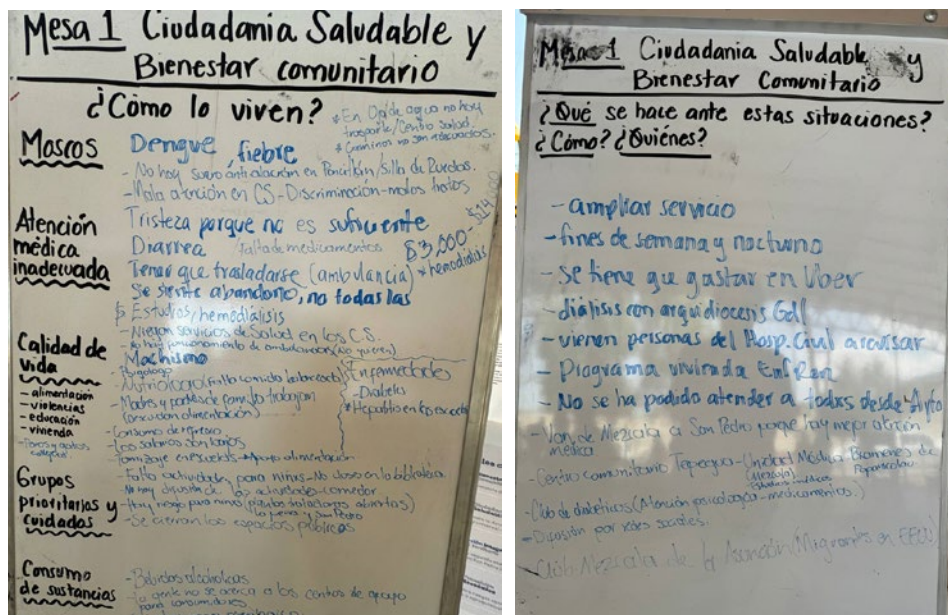 Mesa 1 Ciudadania Saludable y
Bienestar comunitario
¿Cómo lo viven?
* En Ojo de agua no hay
trasporte/Centro Salud.
* Caminos no son adecuados.
Moscos
Dengue, fiebre
- No hay suero anti alacran en /Silla de Ruedas.
- Mala atención en CS - Discriminación - malos tratos
Atención
médica
inadecuada
Tristeza porque no es suficiente
Diarrea Falta de medicamentos
$3,000 - $14,000
* hemodialisis
Tener que trasladarse (ambulancia)
Se siente abandono, no todas las
$ Estudios/hemodiálisis
- Niegan servicios de Salud en los C.S.
- No hay funcionamiento de ambulancias (No quieren)
Calidad de
vida
- alimentación
- violencias
- educación
- vivienda
- Perros y gatos
Machismo
- Nutriologo (Falta comida balanceada)
- Madres y padres de familia trabajan
alimentación)
- Consumo de refresco
- Los salarios son bajos
- en escuelas - Apoyo alimentación
Enfermedades
- Diabetes
* Hepatitis en las escuelas
Grupos
prioritarios y
cuidados
- Falta actividades para niños - No clases en la biblioteca.
- No hay difusión de las actividades - comedor
- Hay riesgo para niños abiertas)
y San Pedro
- Se cierran los espacios públicos
Consumo
de sustancias
- Bebidas alcoholicas
- la gente no se acerca a los centros de apoyo
para consumidores
Mesa 1 Ciudadania Saludable y
Bienestar Comunitario
¿Qué se hace ante estas situaciones?
¿Cómo? ¿Quiénes?
- ampliar servicio
- fines de semana y nocturno
- se tiene que gastar en Uber
- diálisis con arquidiocesis Gdl
- vienen personas del Hosp. Civil a revisar
- Programa vivienda
- No se ha podido atender a todxs desde Ayto
- Van de Mezcala a San Pedro porque hay mejor atención
médica
- Centro comunitario - Unidad Médica
(Mezcala)
- Club de diabéticos (Atención psicologica - medicamentos.)
- Difusión por redes sociales.
- Club Mezcala de la Asunción (Migrantes en EEUU)